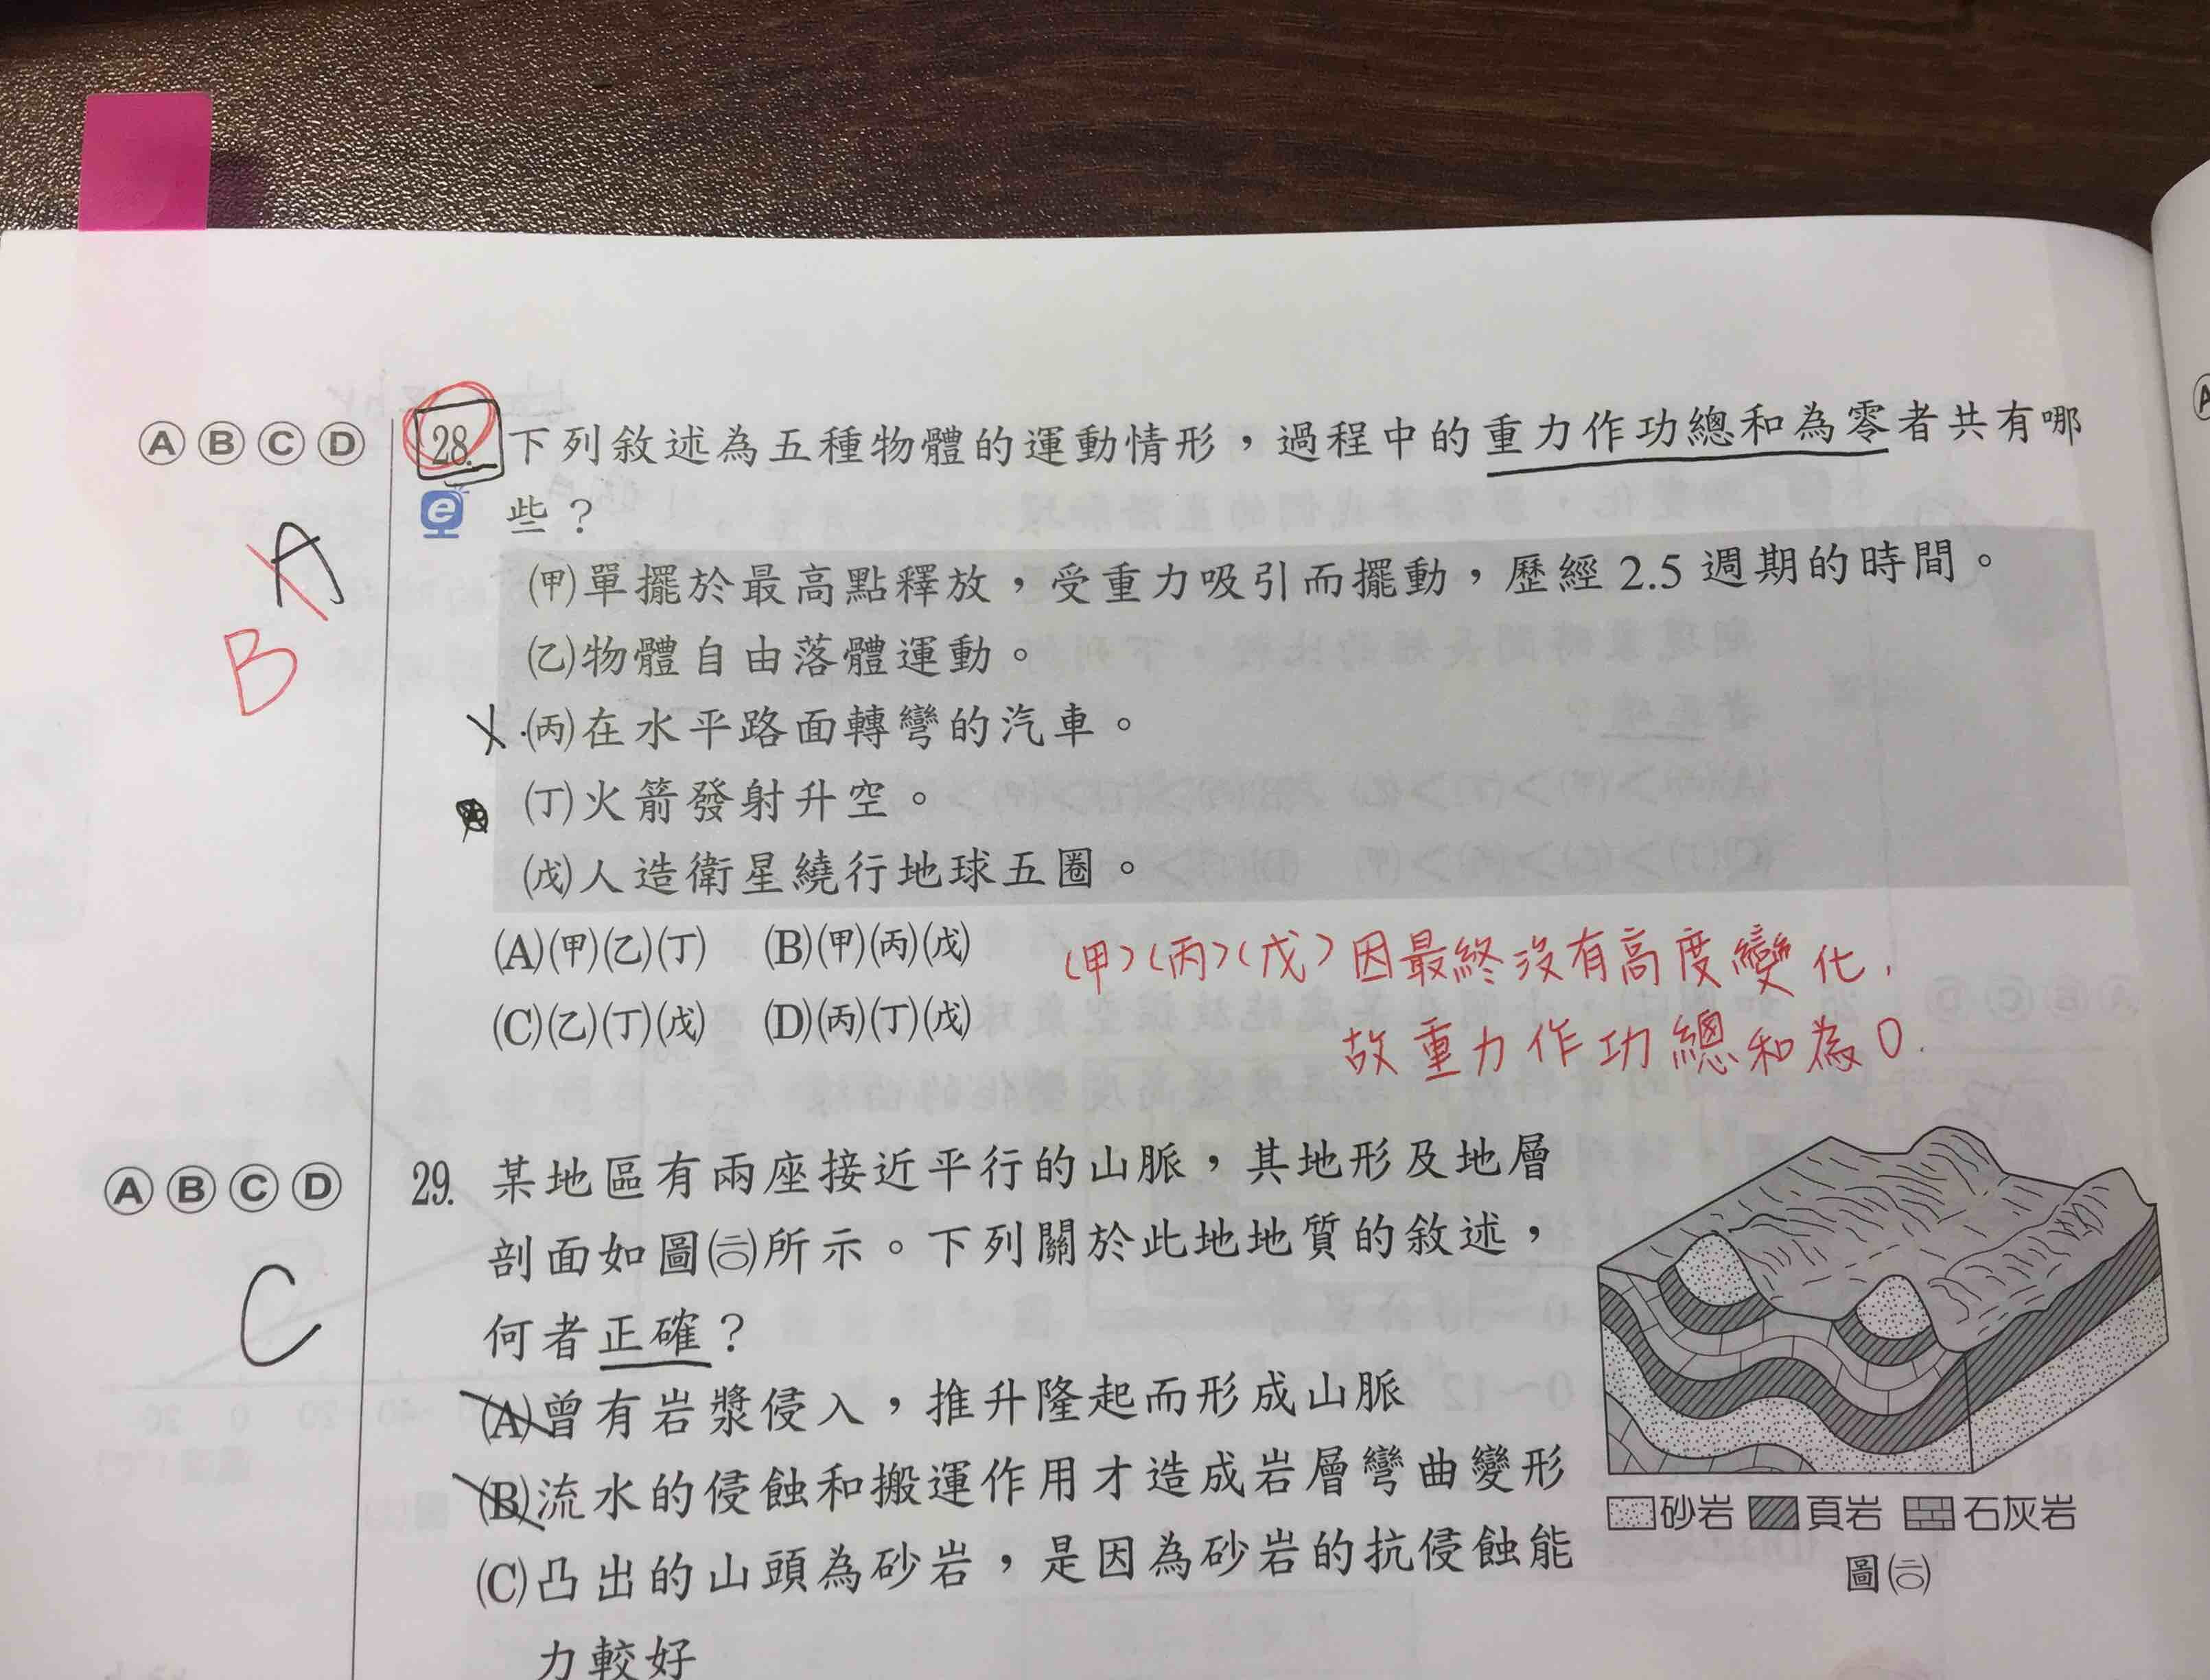 ⒶⒷⒸⒹ 28. 下列敘述為五種物體的運動情形，過程中的重力作功總和為零者共有哪
些？
A
B
(甲)單擺於最高點釋放，受重力吸引而擺動，歷經 2.5 週期的時間。
(乙)物體自由落體運動。
(丙)在水平路面轉彎的汽車。
(丁)火箭發射升空。
(戊)人造衛星繞行地球五圈。
(A)(甲)(乙)(丁) (B)(甲)(丙)(戊)
(C)(乙)(丁)(戊) (D)(丙)(丁)(戊)
(甲)(丙)(戊)因最終沒有高度變化，
故重力作功總和為0.
ⒶⒷⒸⒹ 29. 某地區有兩座接近平行的山脈，其地形及地層
剖面如圖(二十)所示。下列關於此地地質的敘述，
何者正確？
C
(A)曾有岩漿侵入，推升隆起而形成山脈
(B)流水的侵蝕和搬運作用才造成岩層彎曲變形
(C)凸出的山頭為砂岩，是因為砂岩的抗侵蝕能
力較好
砂岩 頁岩 石灰岩